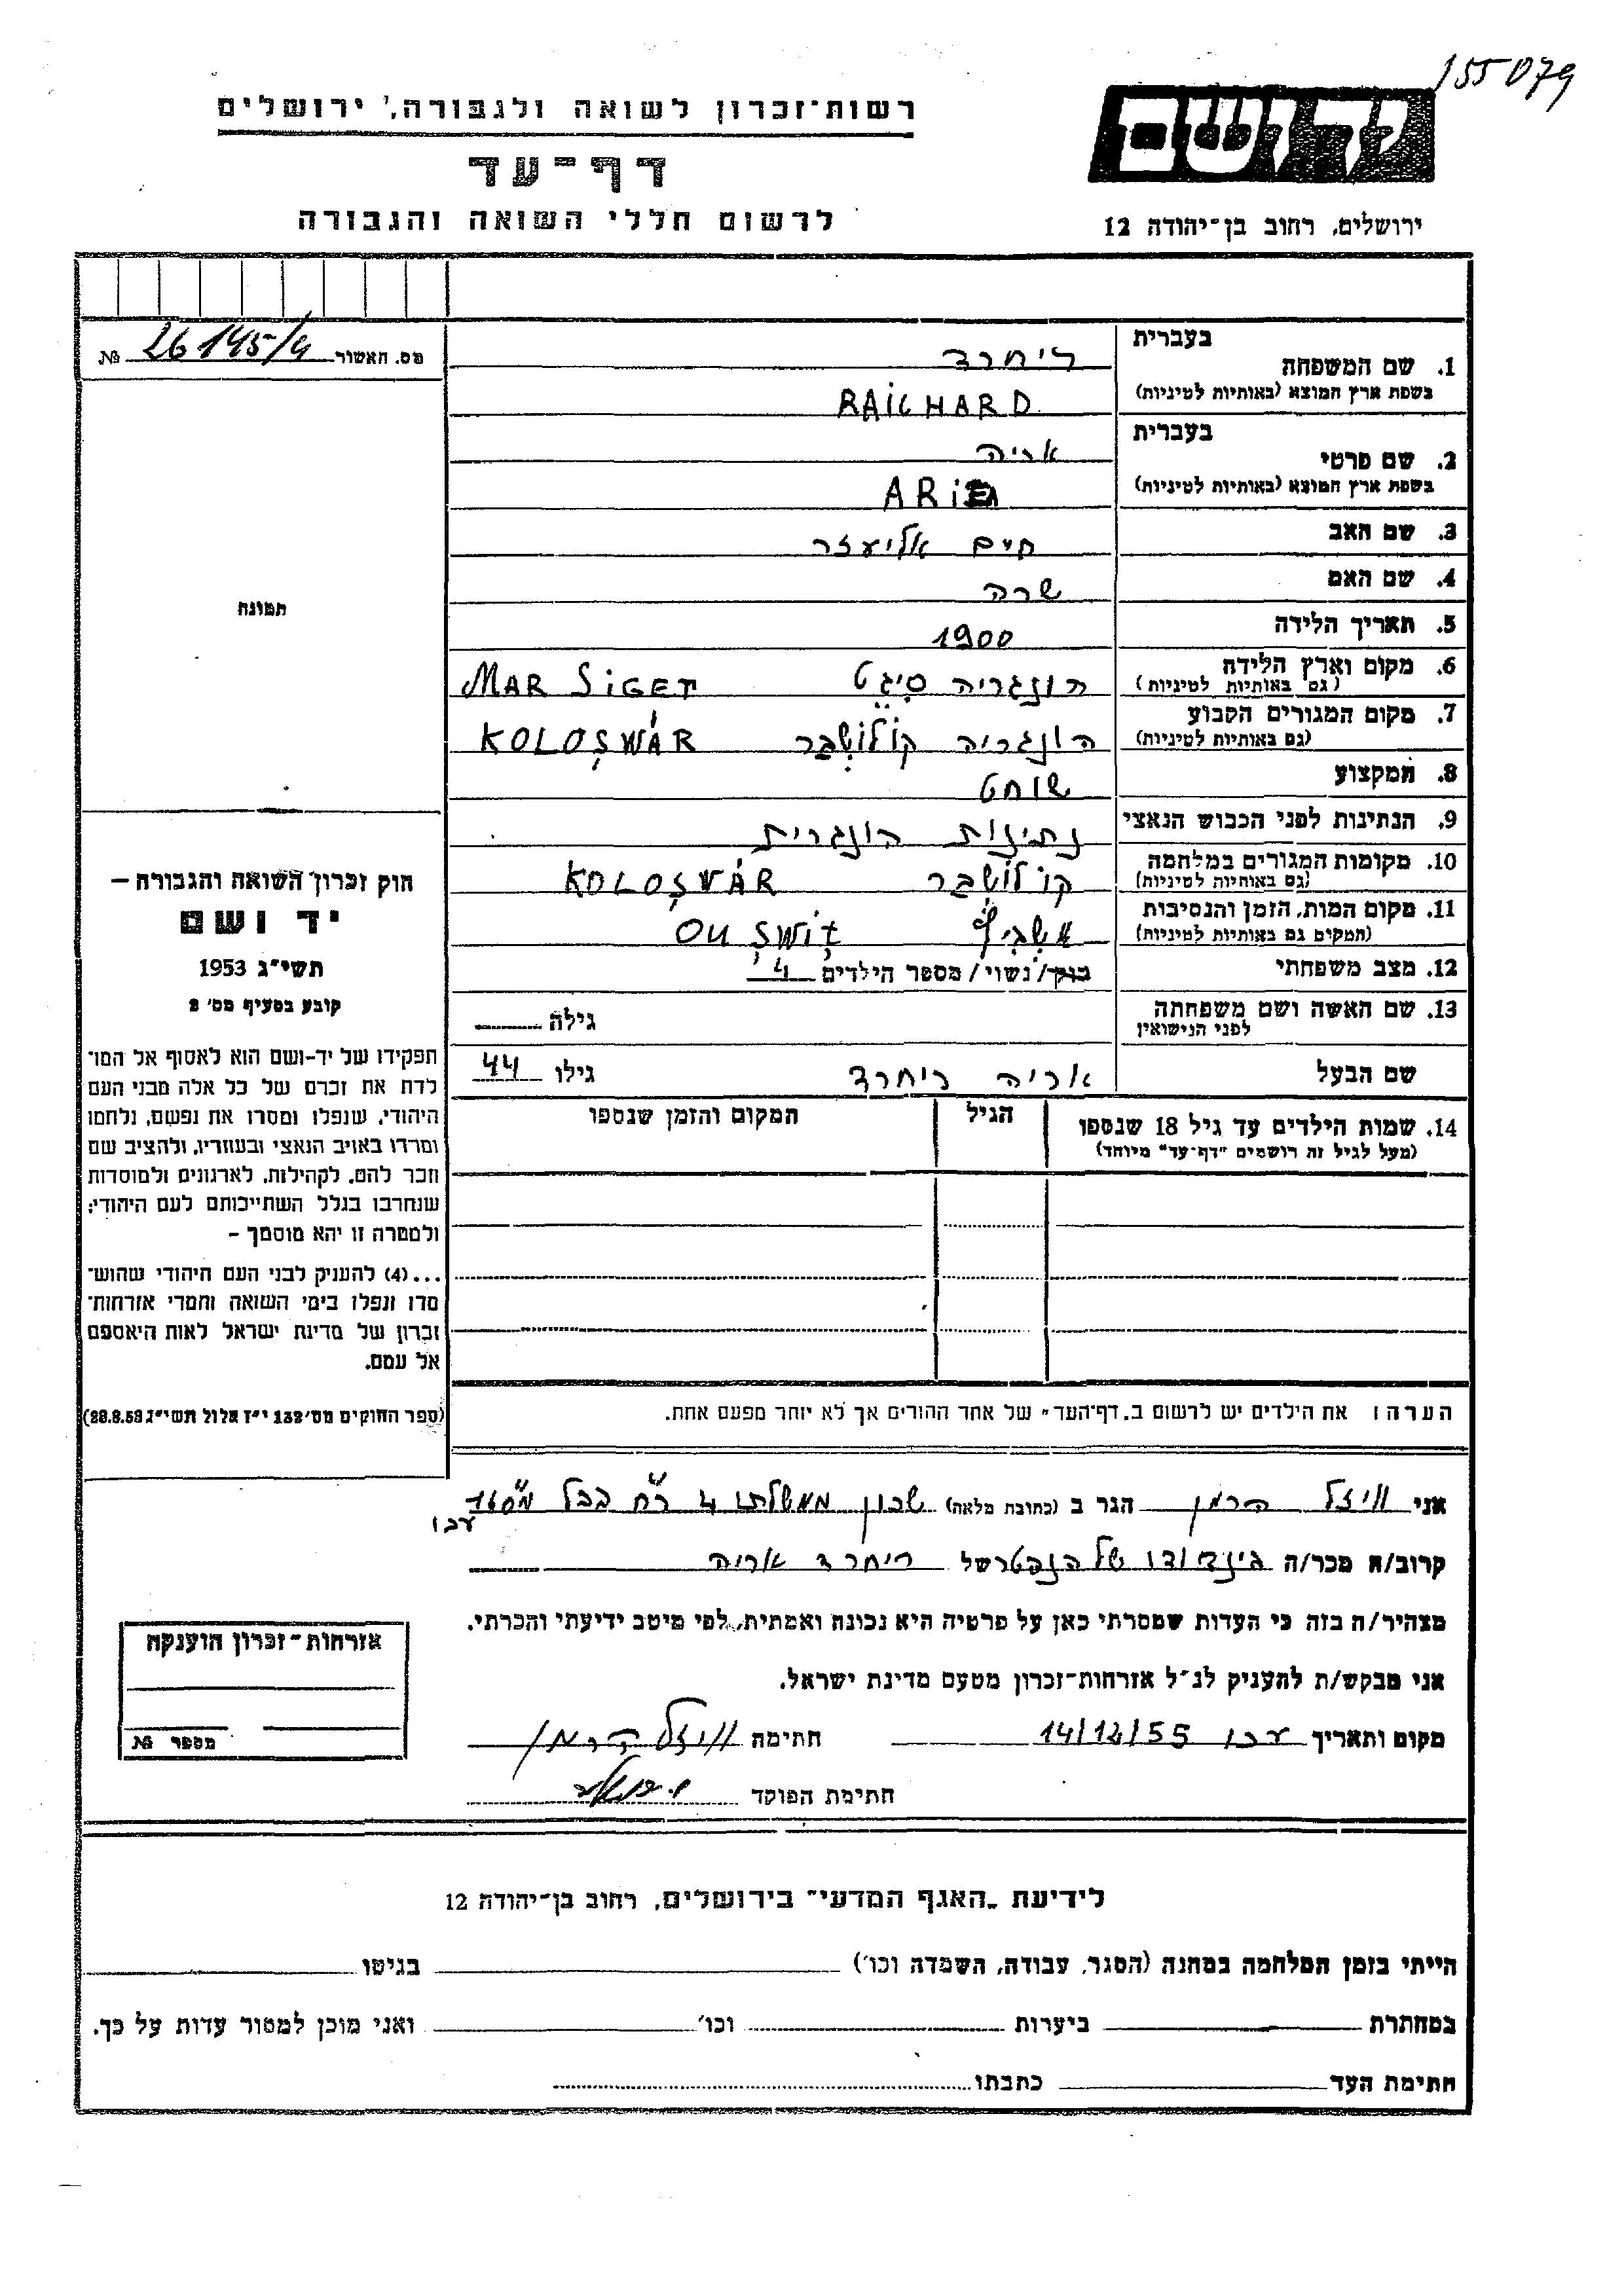 155079
רשות־זכרון לשואה ולגבורה, ירושלים
דף־עד
לרשום חללי השואה והגבורה
יד ושם
ירושלים, רחוב בן־יהודה 12
מס. האשור 26145/9 №
תמונה
חוק זכרון השואה והגבורה —
יד ושם
תשי״ג 1953
קובע בסעיף מס׳ 2
תפקידו של יד-ושם הוא לאסוף אל המו־
לדת את זכרם של כל אלה מבני העם
היהודי, שנפלו ומסרו את נפשם, נלחמו
ומרדו באויב הנאצי ובעוזריו, ולהציב שם
וזכר להם, לקהילות, לארגונים ולמוסדות
שנחרבו בגלל השתייכותם לעם היהודי;
ולמטרה זו יהא מוסמך —
...(4) להעניק לבני העם היהודי שהוש־
מדו ונפלו בימי השואה והמרי אזרחות־
זכרון של מדינת ישראל לאות היאספם
אל עמם.
(ספר החוקים מס׳ 132 י״ז אלול תשי״ג 28.8.53)
בעברית
1. שם המשפחה ריחרד
בשפת ארץ המוצא (באותיות לטיניות) RAICHARD
בעברית
2. שם פרטי אריה
בשפת ארץ המוצא (באותיות לטיניות)
3. שם האב חיים אליעזר
4. שם האם שרה
5. תאריך הלידה 1900
6. מקום וארץ הלידה הונגריה סיגט MAR SiGET
(גם באותיות לטיניות)
7. מקום המגורים הקבוע הונגריה קולושבר KOLOSWÁR
(גם באותיות לטיניות)
8. המקצוע שוחט
9. הנתינות לפני הכבוש הנאצי נתינות הונגרית
10. מקומות המגורים במלחמה קולושבר KOLOSWÁR
(גם באותיות לטיניות)
11. מקום המות, הזמן והנסיבות OUSWiT
(המקום גם באותיות לטיניות)
12. מצב משפחתי רווק/נשוי/מספר הילדים 4
13. שם האשה ושם משפחתה גילה
לפני הנישואין
שם הבעל אריה ריחרד גילו 44
14. שמות הילדים עד גיל 18 שנספו הגיל המקום והזמן שנספו
(מעל לגיל זה רושמים ״דף־עד״ מיוחד)
הערה: את הילדים יש לרשום ב„דף־העד״ של אחד ההורים אך לא יותר מפעם אחת.
אני וויזל הרמן הגר ב (כתובת מלאה) שכון ממשלתי 4
עכו
קרוב/ה מכר/ה של ריחרד אריה
מצהיר/ה בזה כי העדות שמסרתי כאן על פרטיה היא נכונה ואמתית, לפי מיטב ידיעתי והכרתי.
אני מבקש/ת להעניק לנ״ל אזרחות־זכרון מטעם מדינת ישראל.
מקום ותאריך עכו 14/12/55 חתימה וויזל הרמן
חתימת הפוקד
אזרחות־זכרון הוענקה
מספר №
לידיעת „האגף המדעי״ בירושלים, רחוב בן־יהודה 12
הייתי בזמן המלחמה במחנה (הסגר, עבודה, השמדה וכו׳) בגיטו
במחתרת ביערות וכו׳ ואני מוכן למסור עדות על כך.
חתימת העד כתבתו